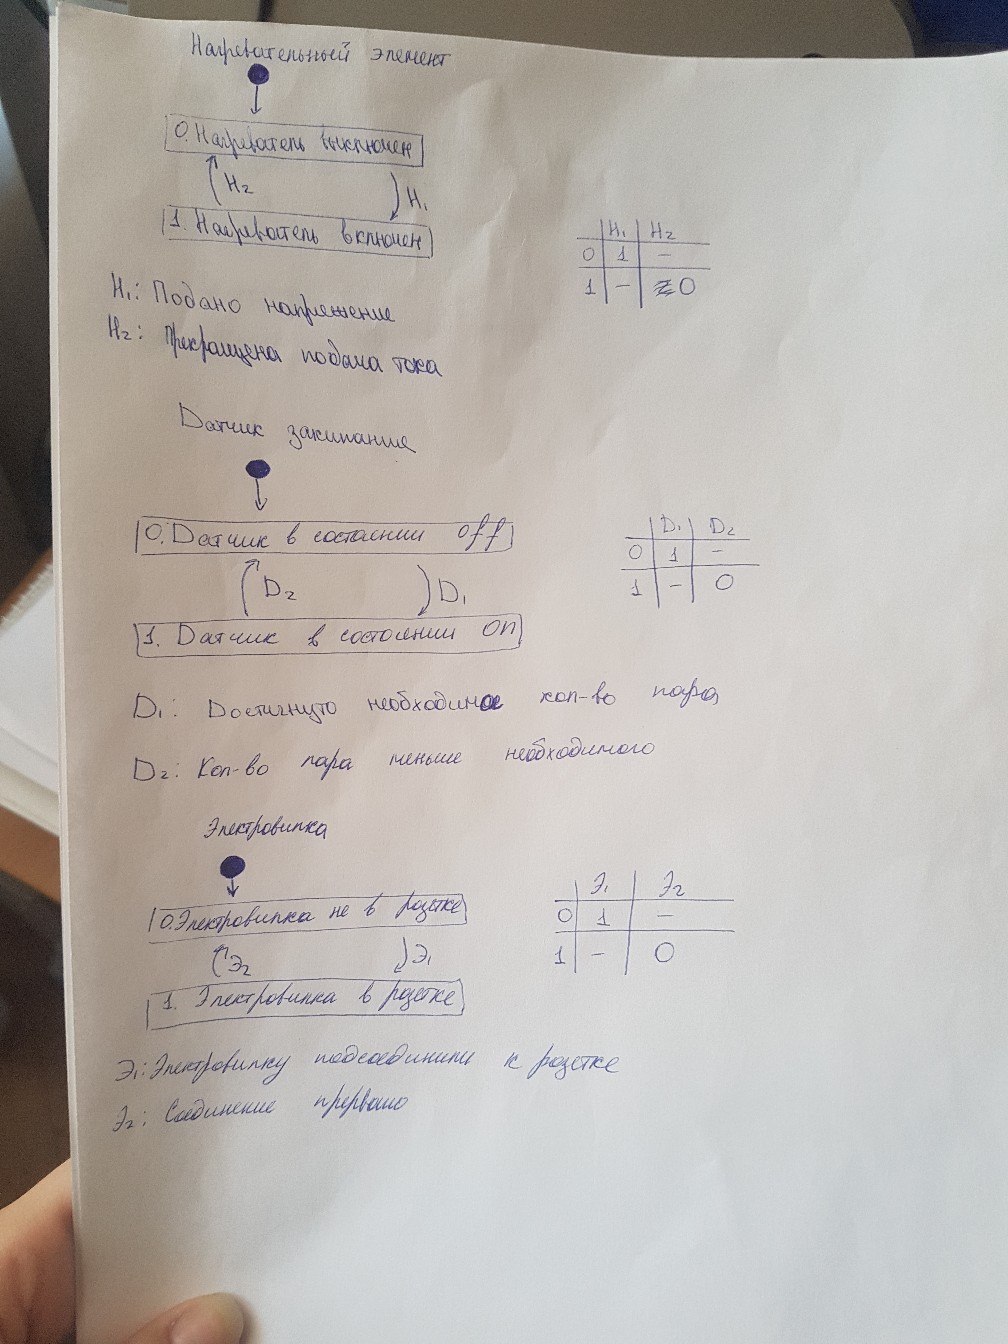 Нагревательный элемент
0. Нагреватель выключен
H2 H1
1. Нагреватель включен
H1 H2
0 1 -
1 - 0
H1: Подано напряжение
H2: Прекращена подача тока
Датчик закипание
0. Датчик в состоянии off
D2 D1
1. Датчик в состоянии on
D1 D2
0 1 -
1 - 0
D1: Достигнуто необходимое кол-во пара
D2: Кол-во пара меньше необходимого
Электровилка
0. Электровилка не в розетке
Э2 Э1
1. Электровилка в розетке
Э1 Э2
0 1 -
1 - 0
Э1: Электровилку подсоединили к розетке
Э2: Соединение прервано